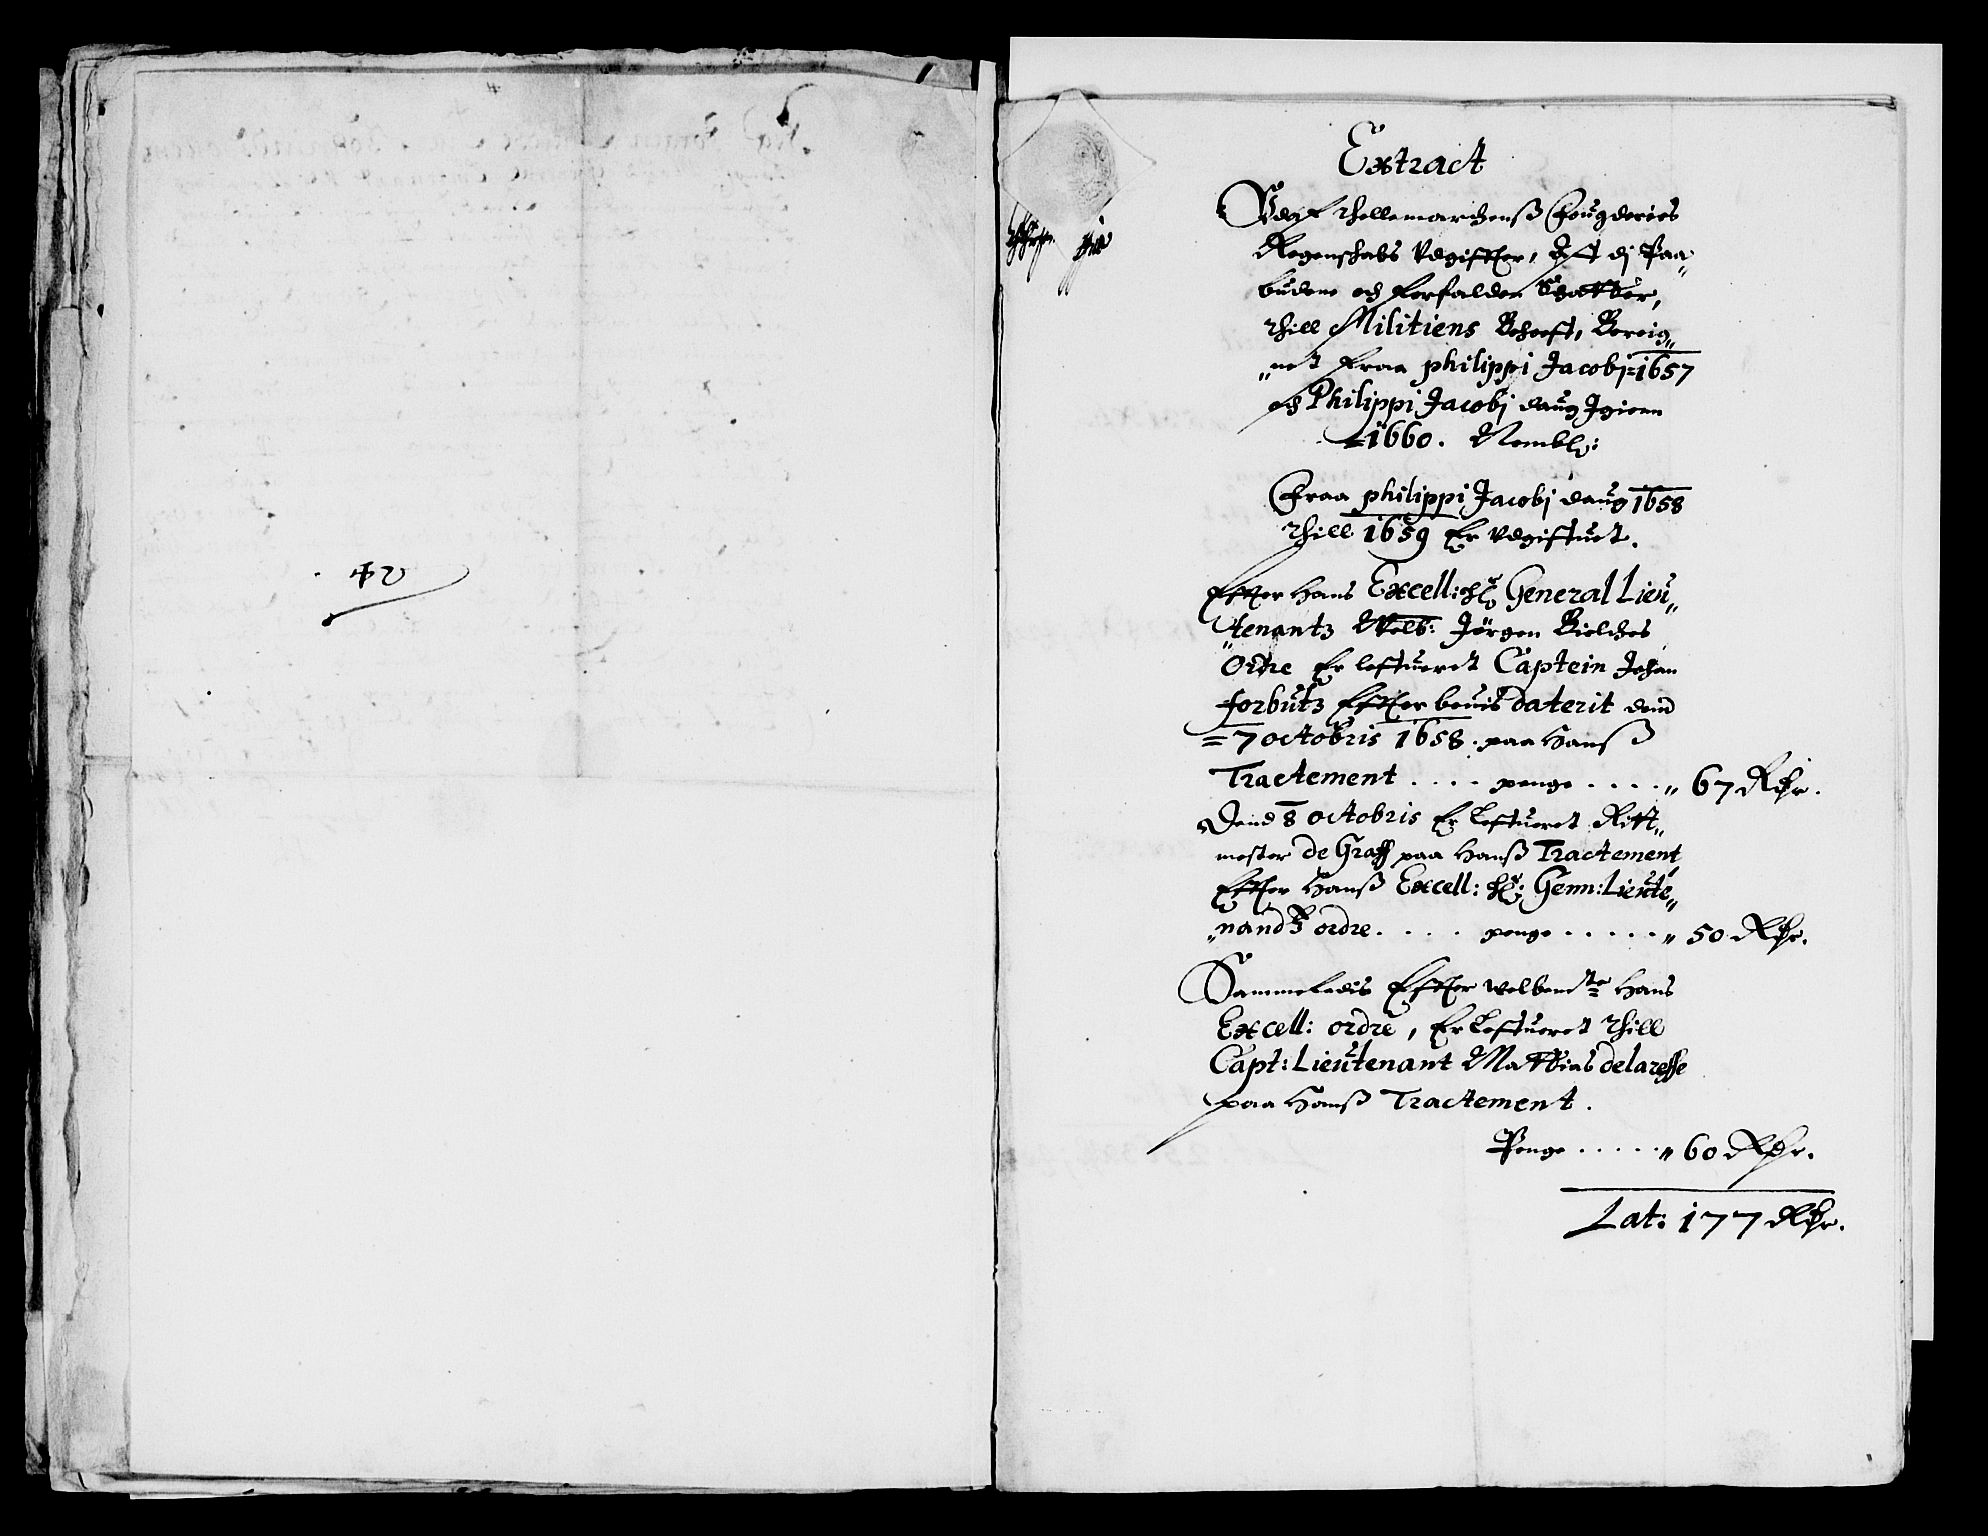 Extract
Udaf Thellemarchens Fougderies
Regenschabs Udgiffter, Aff dj Paa„
budene och forfalden Schatter,
thill Militiens Behooff, Bereig„
„net fraa philippi Jacobj 1657
och Philippi Jacobj daug Igien
1660. Nembl:
Fraa philippi Jacobj daug 1658
thill 1659 Er Udgiftuet.
Effter hans Excell: General Lieu„
„tenantz Welb: Jørgen Bielches
ordre Er leftueret Captein Johan
forbutz Effter beuis daterit dend
7 octobris 1658. paa hanß
Tractement . . . . penge . . . . „ 67 Rdr.
Dend 8 octobris Er Leftueret Ritt„
mester de Graff paa hanß Tractement
Effter hanß Excell: Genn: Lieute„
„nandtz ordre . . . . penge . . . . . „ 50 Rdr.
Sammeledis Effter welbemte hans
Excell: ordre, Er Leftueret thill
Capt: Lieutenant Mattias delareffe
paa hanß Tractement.
Penge . . . . . „ 60 Rdr.
Lat: 177 Rdr.